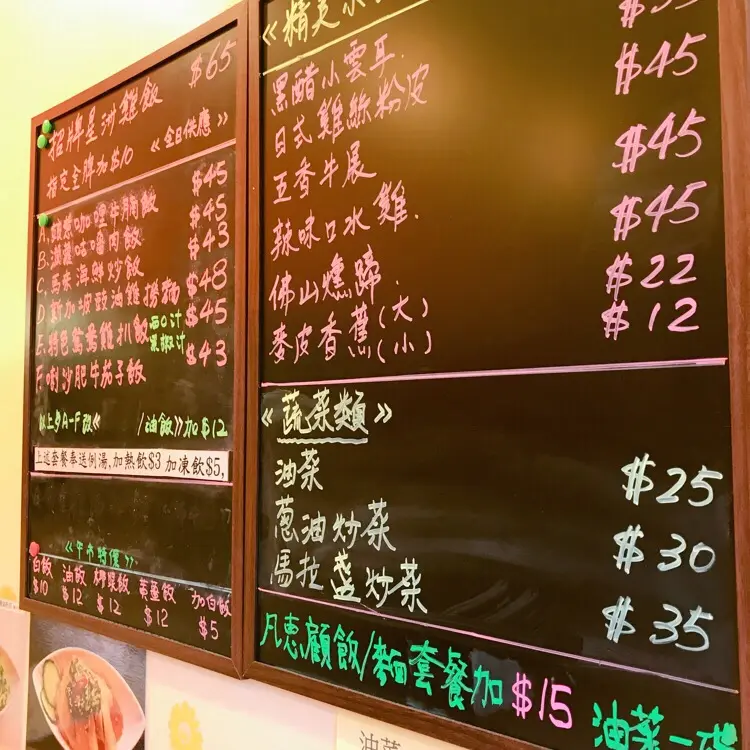 招牌星洲雞飯 $65
指定全牌加$10 《全日供應》
A. 咖哩牛腩飯 $45
B. 咕嚕肉飯 $45
C. 馬來海鮮炒飯 $43
D. 新加坡豉油雞撈麵 $48
E. 特色鴛鴦雞扒飯 西〇汁 黑椒汁 $45
F. 喇沙肥牛茄子飯 $43
以上身A-F改《 /油飯》加$12
上述套餐奉送例湯,加熱飲$3 加凍飲$5,
《午市特價》
白飯 油飯 椰漿飯 黃薑飯 加白飯
$10 $12 $12 $12 $5
《精美
黑醋小雲耳. $45
日式雞絲粉皮
五香牛展 $45
辣味口水雞. $45
佛山燻蹄. $22
麥皮香蕉(大)(小) $12
《蔬菜類》
油菜 $25
蔥油炒菜 $30
馬拉盞炒菜 $35
凡惠顧飯/麵套餐加$15 油菜一